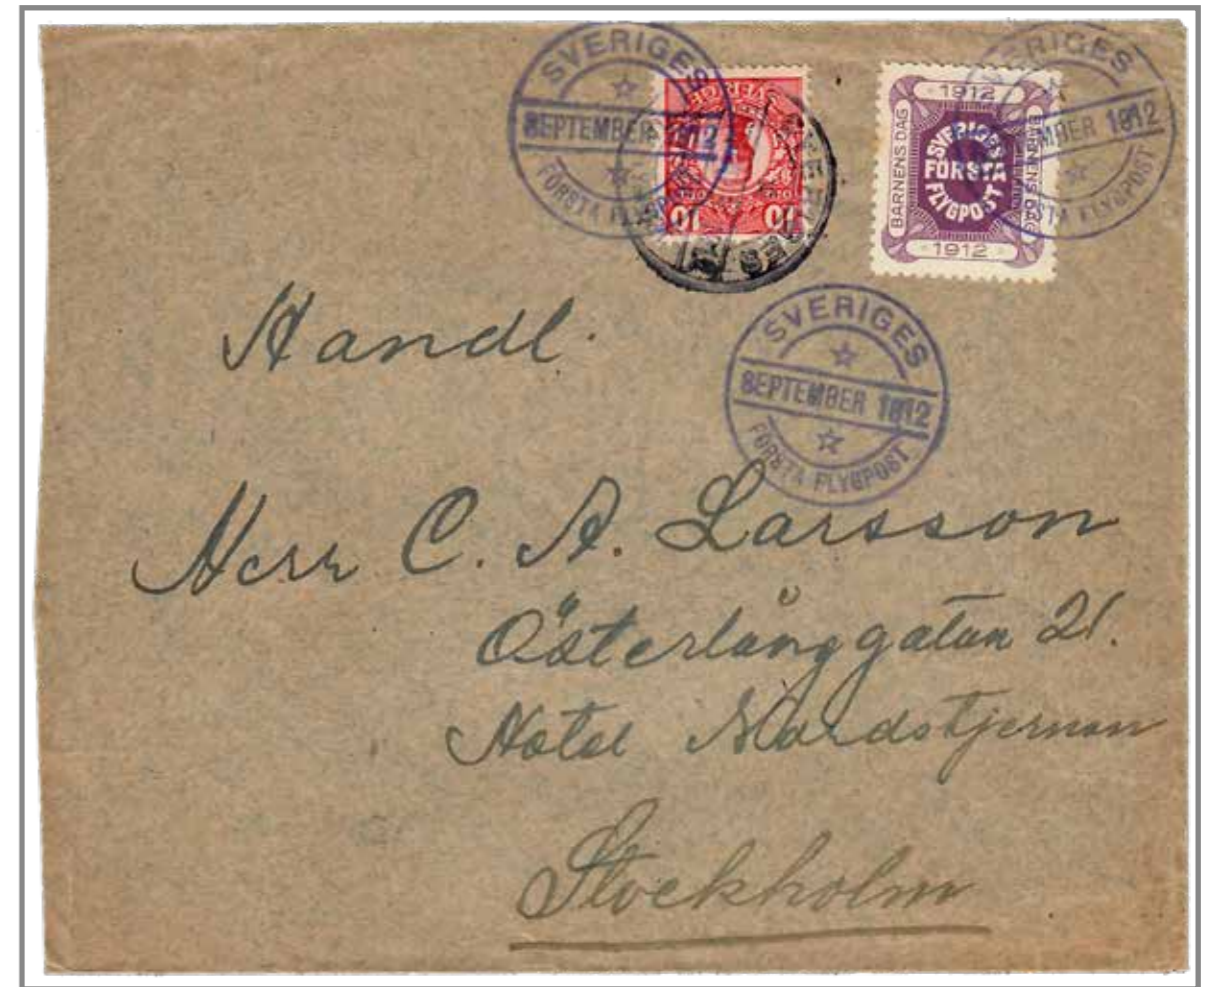 SVERIGES
SEPTEMBER 1912
FÖRSTA FLYGPOST
SVERIGE
10 10
1912
BARNENS DAG
SVERIGES
FÖRSTA
FLYGPOST
BARNENS DAG
1912
SVERIGES
SEPTEMBER 1912
FÖRSTA FLYGPOST
SVERIGES
SEPTEMBER 1912
FÖRSTA FLYGPOST
Handl.
Herr C. A. Larsson
Österlånggatan 21.
Hotel Nordstjernan
Stockholm